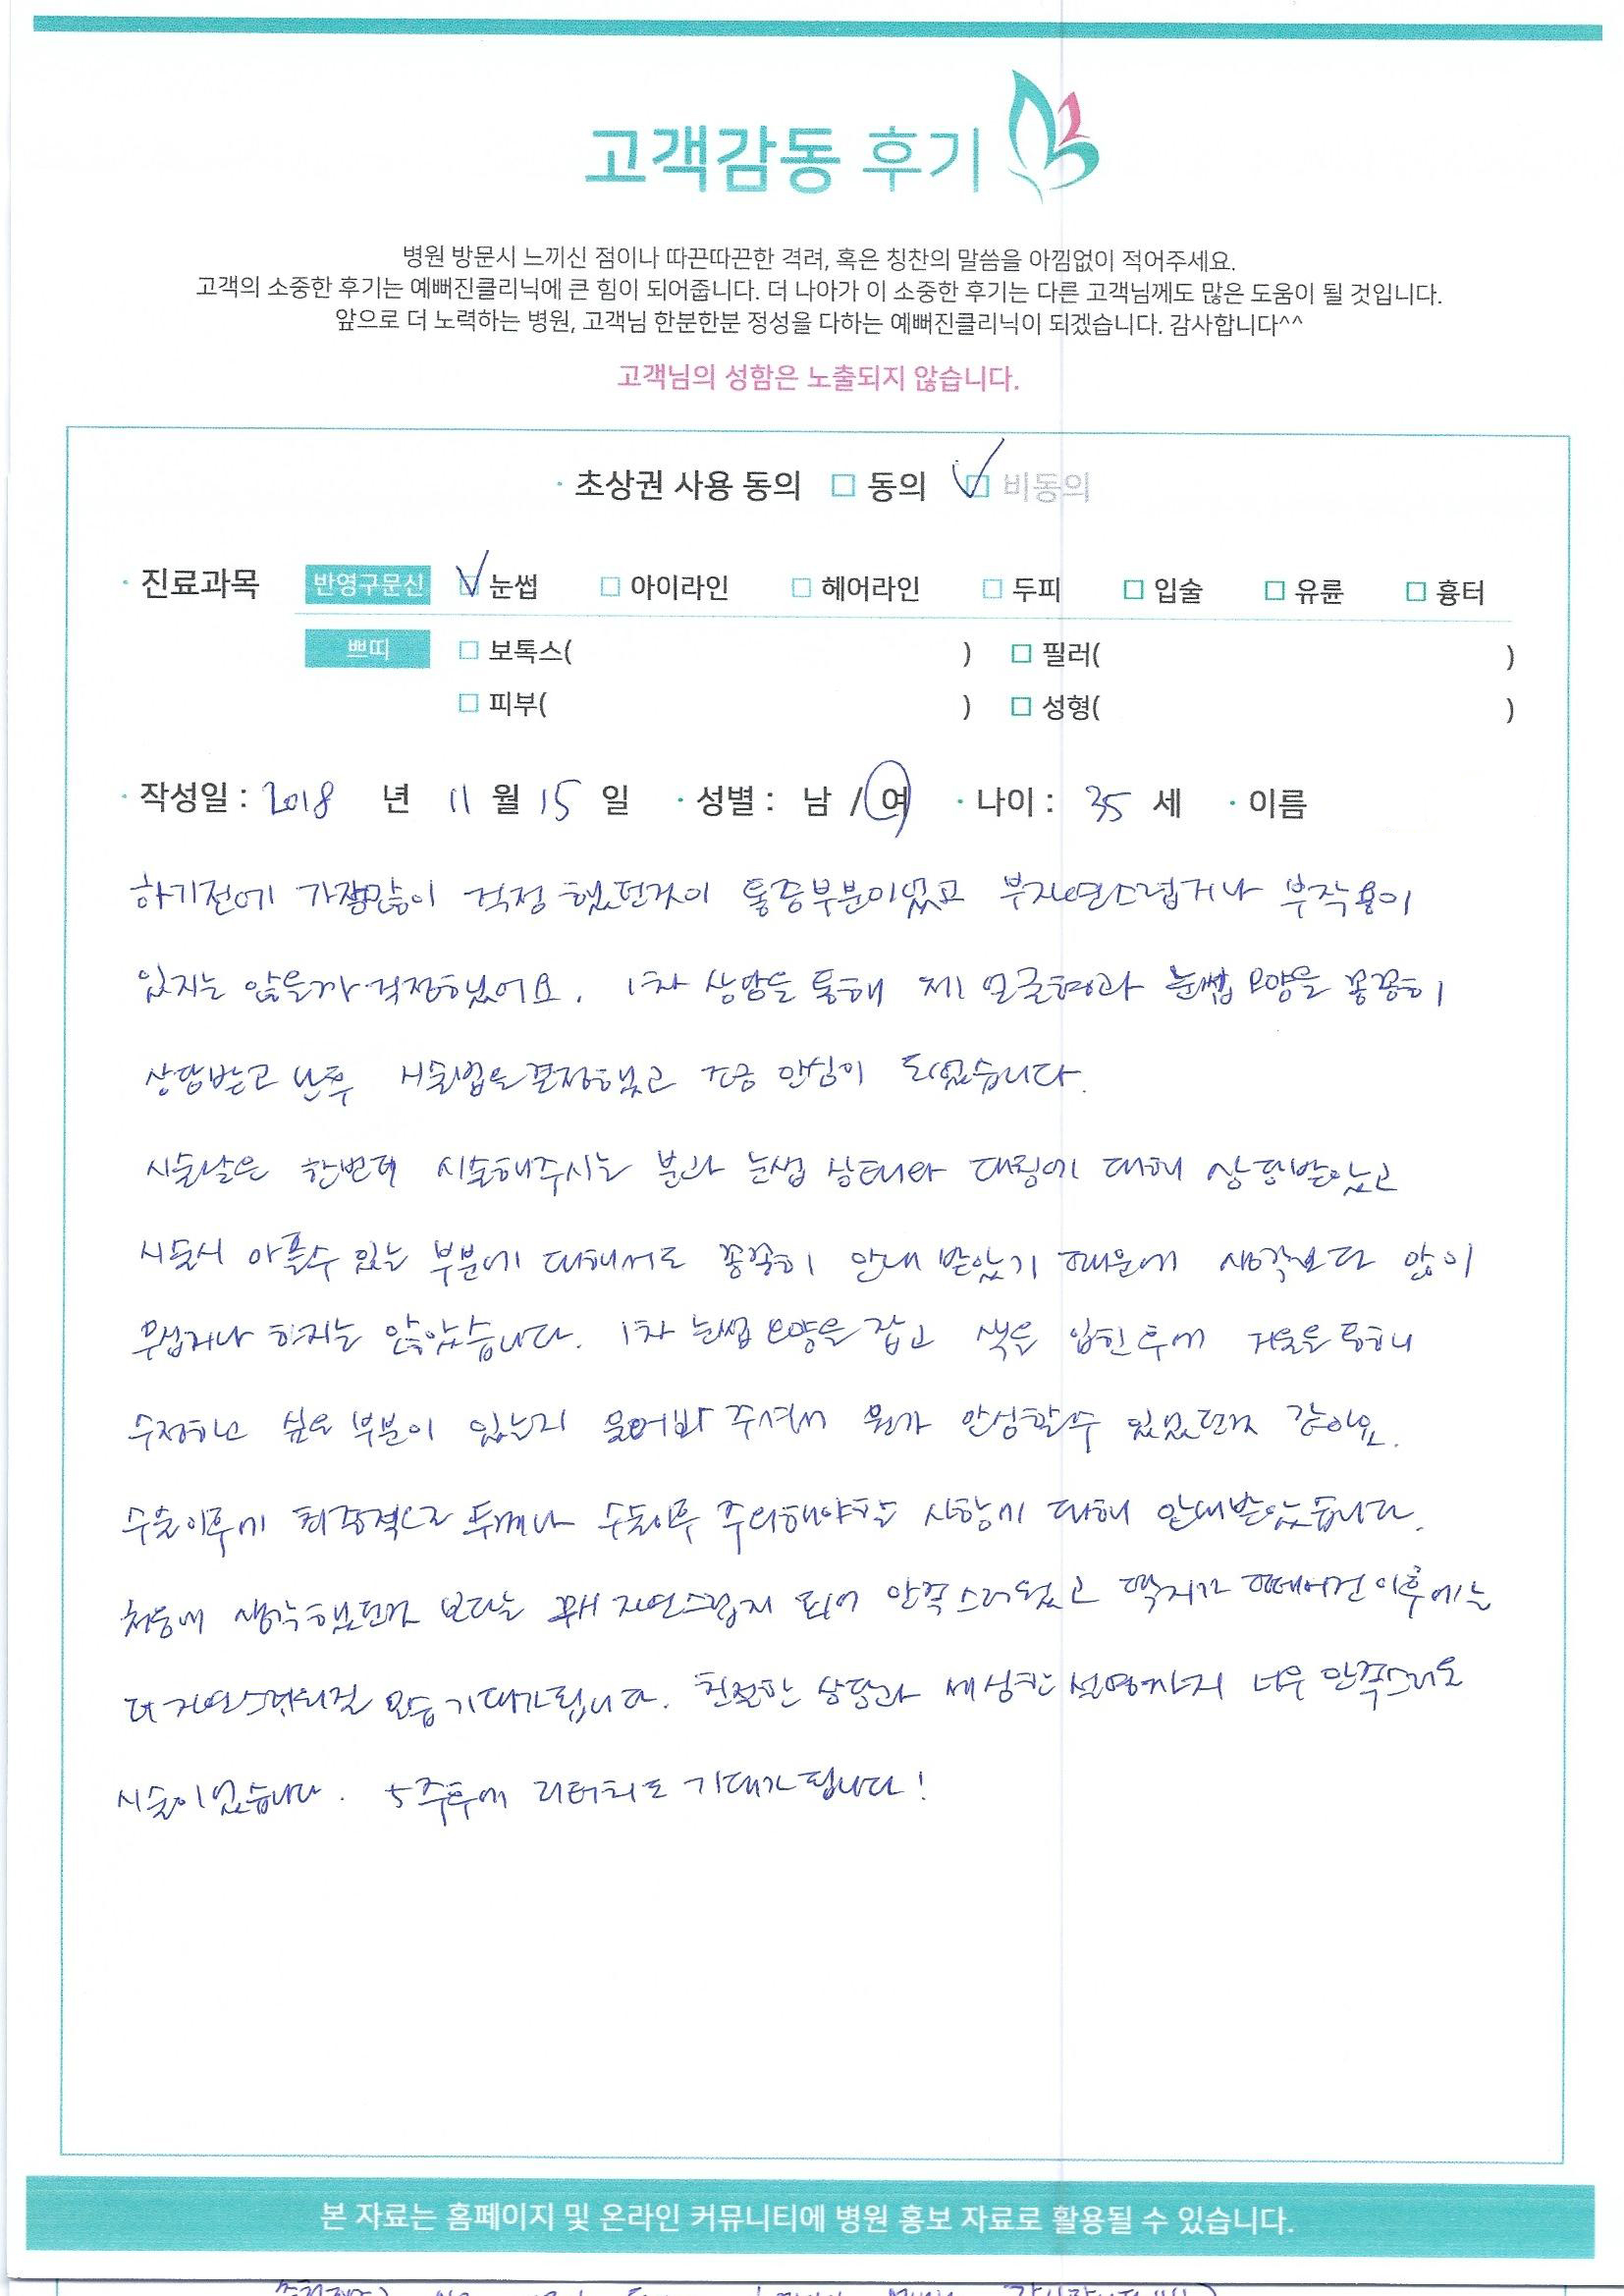 고객감동 후기
병원 방문시 느끼신 점이나 따끈따끈한 격려, 혹은 칭찬의 말씀을 아낌없이 적어주세요.
고객의 소중한 후기는 예뻐진클리닉에 큰 힘이 되어줍니다. 더 나아가 이 소중한 후기는 다른 고객님께도 많은 도움이 될 것입니다.
앞으로 더 노력하는 병원, 고객님 한분한분 정성을 다하는 예뻐진클리닉이 되겠습니다. 감사합니다^^
고객님의 성함은 노출되지 않습니다.
· 초상권 사용 동의 □ 동의 ☑ 비동의
· 진료과목 반영구문신 ☑ 눈썹 □ 아이라인 □ 헤어라인 □ 두피 □ 입술 □ 유륜 □ 흉터
쁘띠 □ 보톡스( ) □ 필러( )
□ 피부( ) □ 성형( )
· 작성일 : 2018 년 11 월 15 일 · 성별 : 남 / 여 · 나이 : 35 세 · 이름
하기전에 가장많이 걱정 했던것이 통증부분이었고 부자연스럽거나 부작용이
있지는 않을까 걱정했어요. 1차 상담을 통해 제 얼굴형과 눈썹 모양을 꼼꼼히
상담받고 난후 시술법을 결정했고 조금 안심이 되었습니다.
시술날은 한번더 시술해주시는 분과 눈썹 상태와 대칭에 대해 상담받았고
시술시 아플수 있는 부분에 대해서도 꼼꼼히 안내 받았기 때문에 생각보다 많이
무섭거나 하지는 않았습니다. 1차 눈썹 모양을 잡고 색을 입힌후에 거울을 통해
수정하고 싶은 부분이 있는지 물어봐 주셔서 뭔가 안심할수 있었던것 같아요.
수술이후에 최종적으로 두께나 수술이후 주의해야할 사항에 대해 안내받았습니다.
처음에 생각했던것 보다는 꽤 자연스럽게 되어 만족스러웠고 딱지가 떼어진 이후에는
더 자연스러워질 모습 기대가됩니다. 친절한 상담과 세심한 설명까지 너무 만족스러운
시술이었습니다. 5주후에 리터치도 기대가 됩니다!
본 자료는 홈페이지 및 온라인 커뮤니티에 병원 홍보 자료로 활용될 수 있습니다.